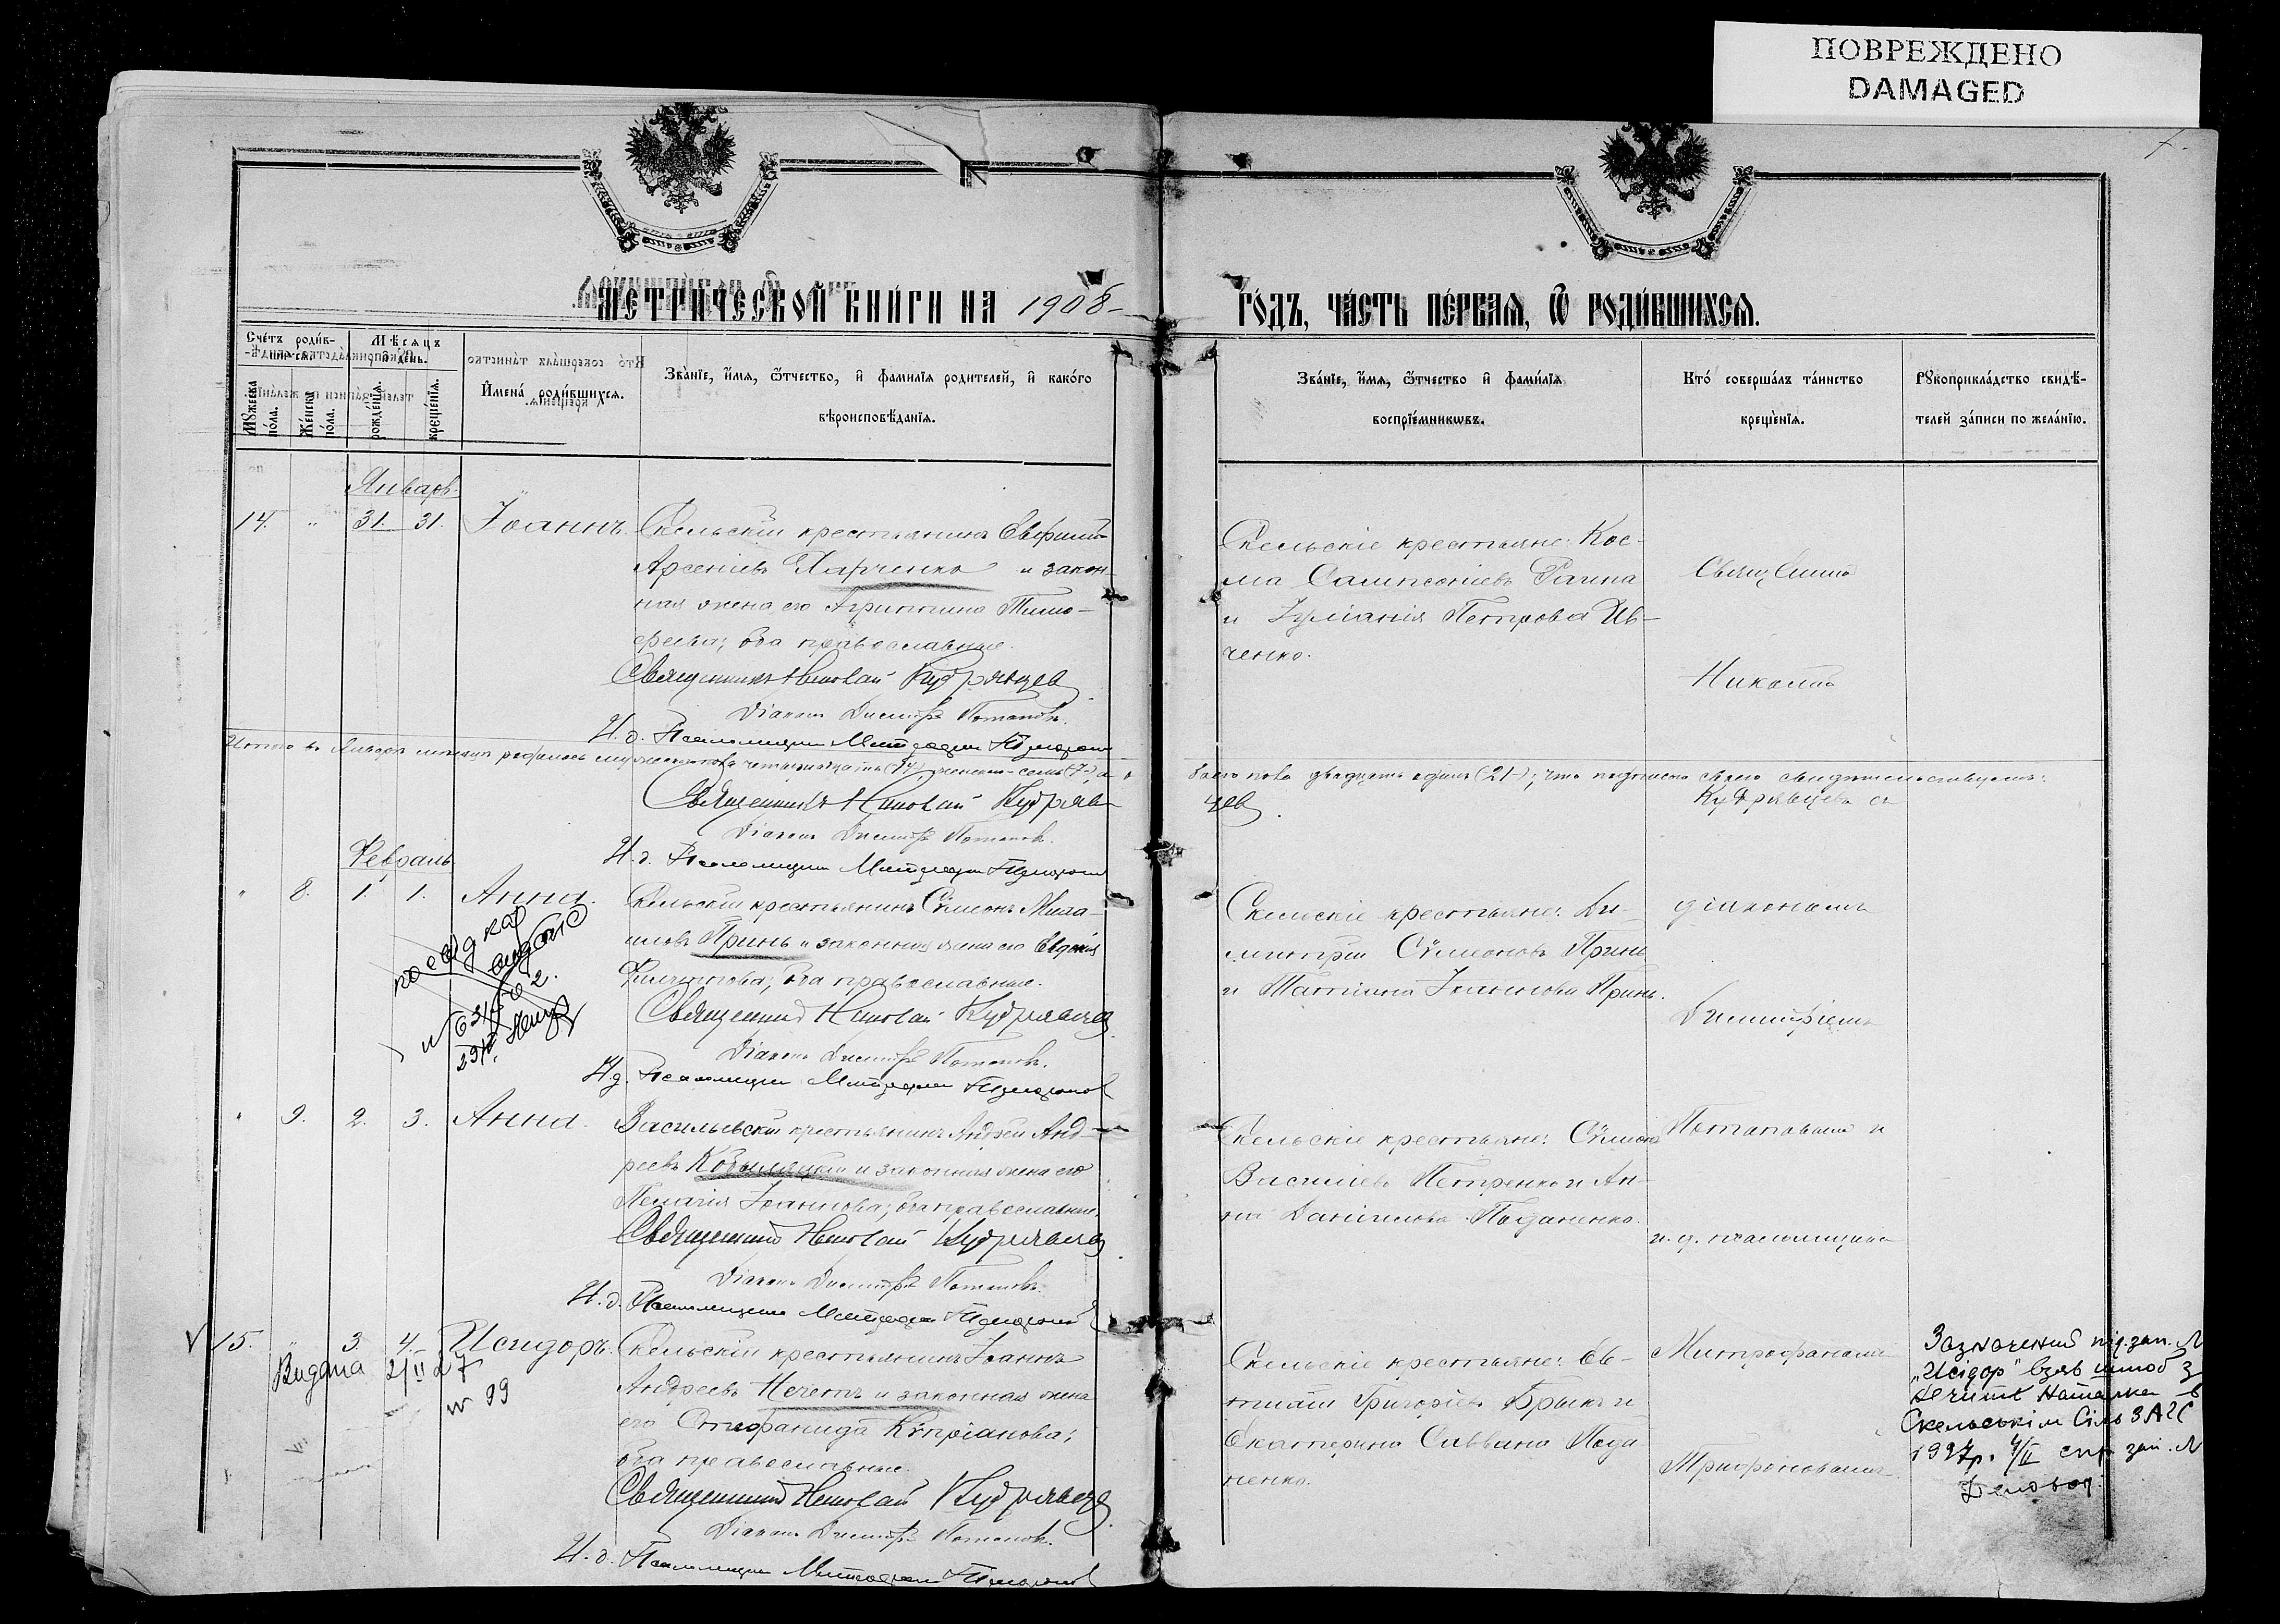 ПОВРЕЖДЕНО
DAMAGED
МЕТРИ́ЧЕСКОЙ КНИ́ГИ НА 1908
ГО́ДЪ, ЧА́СТЬ ПЕ́РВАЯ, Ѿ РОДИ́ВШИХСЯ.
Сче́тъ роди́в-
шихся.
Мѣ́сяцъ
и҆ де́нь.
Мꙋ́жеска по́ла.
Же́нска по́ла.
рожде́нїѧ.
креще́нїѧ.
И҆мена́ роди́вшихсѧ.
Зва́нїе, и҆́мѧ, ѻ҆́тчество, и҆ фами́лїѧ роди́телей, и҆ како́гѡ
вѣроисповѣ́данїѧ.
Зва́нїе, и҆́мѧ, ѻ҆́тчество и҆ фами́лїѧ
воспрїе́мникѡвъ.
Кто́ соверша́лъ та́инство
креще́нїѧ.
Рꙋкоприкла́дство свидѣ́-
телей за́писи по жела́нїю.
Январь.
14. " 31. 31. Іоаннъ.
Скельскій крестьянинъ Евфимій
Арсеніевъ Харченко и закон-
ная жена его Агриппина Тимо-
феева; оба православные.
Священникъ Николай Кудрявцев
Діаконъ Димитрій Потаповъ.
И. д. Псаломщика Митрофан
Скельскіе крестьяне: Кос-
ма Сампсоніевъ
и Іуліанія Петрова Ив-
ченко.
Священ
Николай
Итого въ Январѣ мѣсяцѣ родилось мужескаго четырнадцать (14) женскаго семь (7) а
обоего пола двадцать одинъ (21); что подписью своею свидѣтельствуемъ:
Священникъ Николай Кудряв-
цев.
Кудрявцевъ съ
Діаконъ Димитрій Потаповъ.
И. д. Псаломщика Митрофан
Февраль
" 8. 1. 1. Анна.
Скельскій крестьянинъ Сѵмеонъ Миха-
иловъ Принь и законная жена его Евдокія
Филиппова; оба православные.
Священник Николай Кудрявцев
Діаконъ Димитрій Потаповъ.
И. д. Псаломщика Митрофан
Скельскіе крестьяне: Ди-
митрій Сѵмеоновъ Принь
и Татіана Іоаннова Принь.
діакономъ
Димитріемъ
" 9. 2. 3. Анна.
Васильевскій крестьянинъ Андрей Анд-
реевъ и законная жена его
Пелагія Іоаннова; оба православные.
Священник Николай Кудрявцев
Діаконъ Димитрій Потаповъ.
И. д. Псаломщика Митрофан
Скельскіе крестьяне: Сѵмеонъ
Василіевъ Петренко и Ан-
на Даніилова
Потаповымъ и
и. д. псаломщика
V 15. " 3 4. Исидоръ.
Видана 2/II 27
№ 99
Скельскій крестьянинъ Іоаннъ
Андреевъ Нечетъ и законная жена
его Стефанида Кѵпріанова;
оба православные.
Священник Николай Кудрявцев
Діаконъ Димитрій Потаповъ.
И. д. Псаломщика Митрофан
Скельскіе крестьяне: Ев-
Григоріевъ и
Екатерина Саввина
ненко.
Митрофаномъ
Трифоновымъ
Зазначений під зап. №
„Исідор" взяв шлюб з
в
Скельськім Сіль ЗАГС
1927р. 4/II зап. №
Діловод.